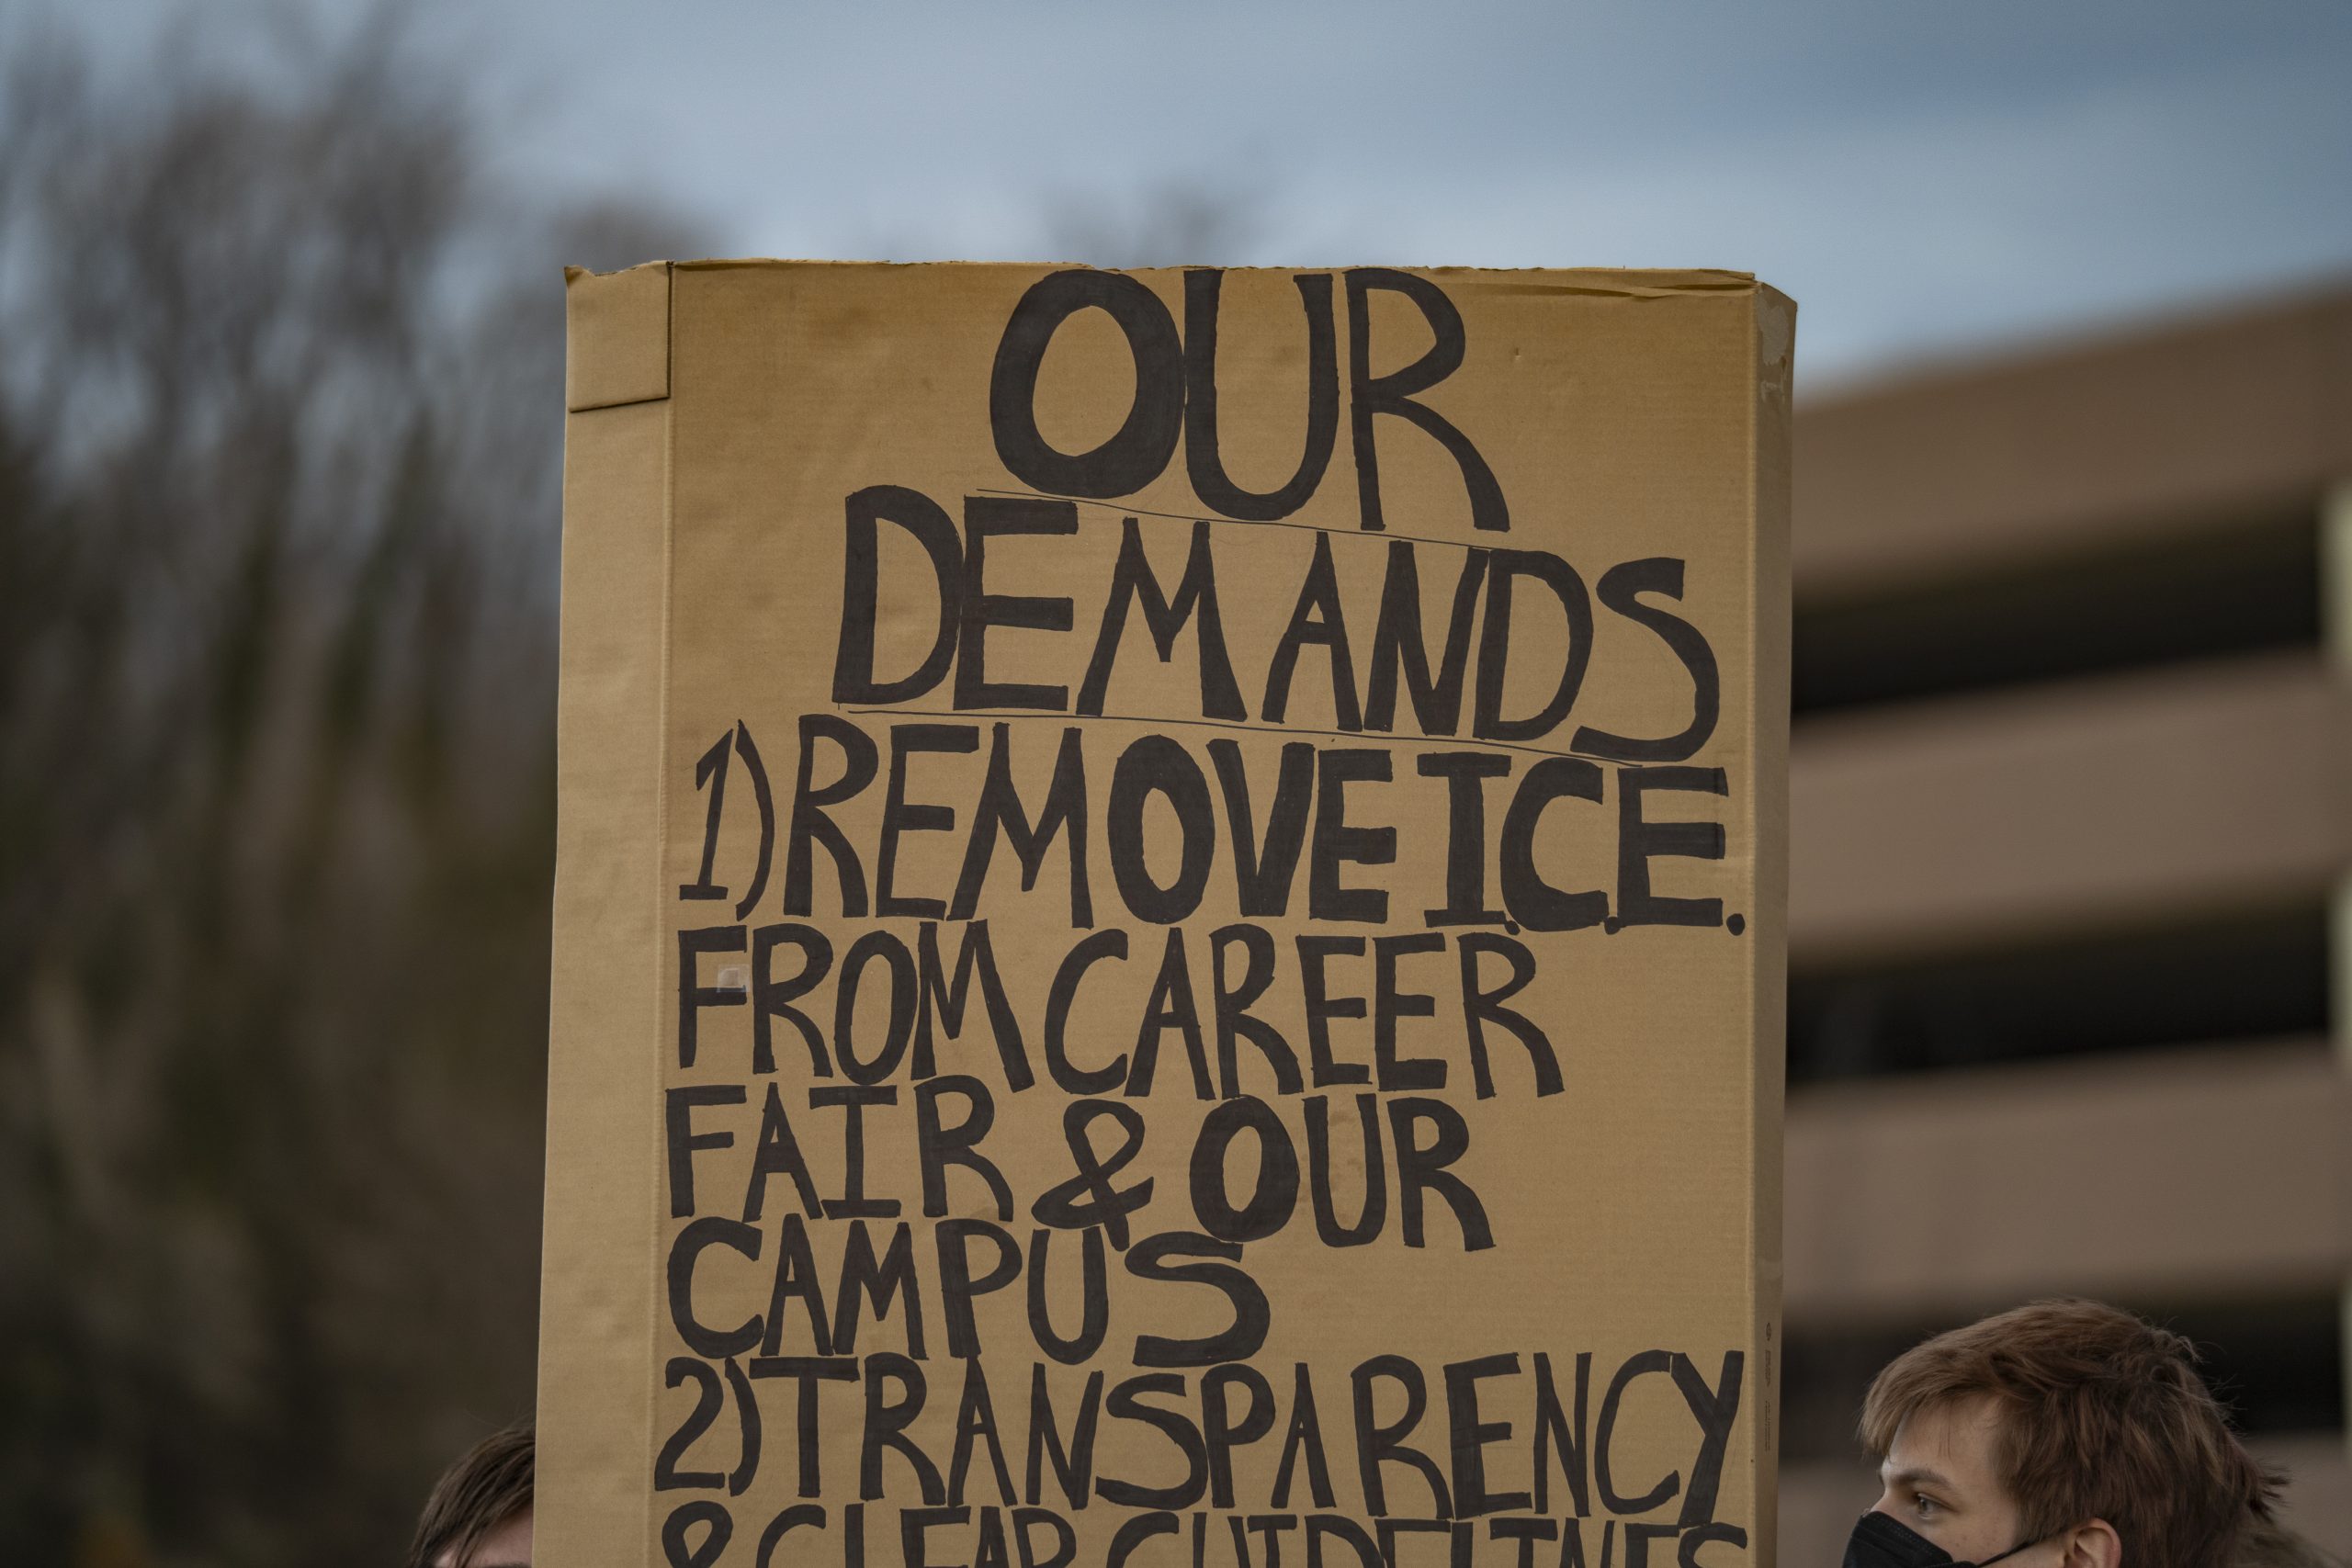 OUR
DEMANDS
1) REMOVE I.C.E.
FROM CAREER
FAIR & OUR
CAMPUS
2) TRANSPARENCY
& CLEAR GUIDELINES